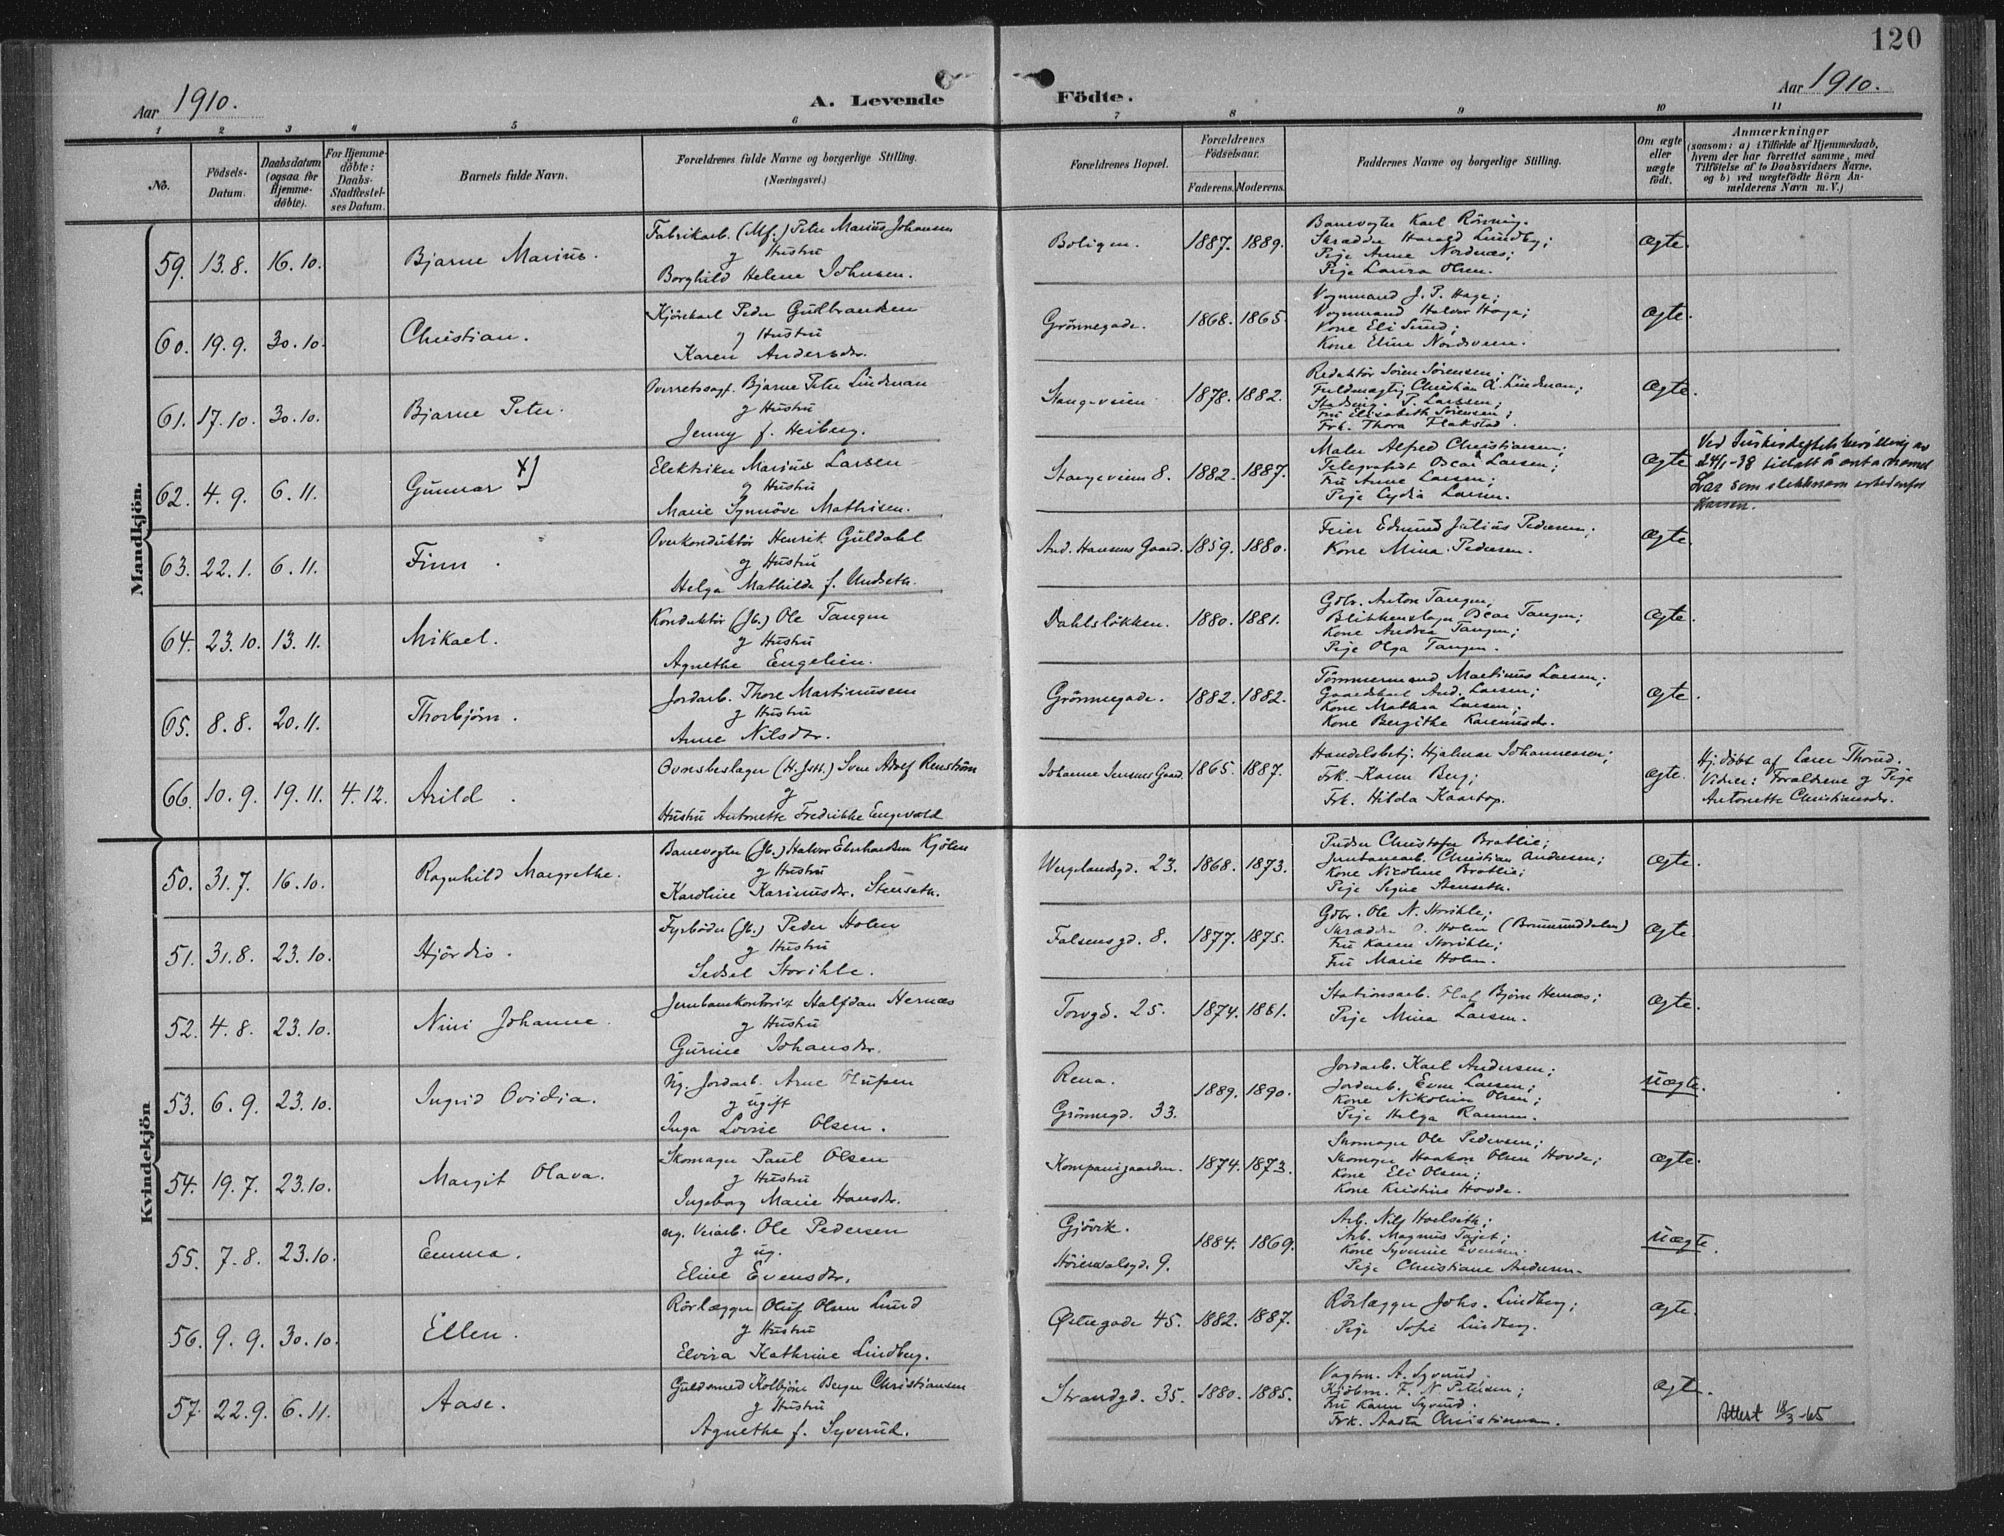 120
Aar 1910.
A. Levende Födte.
Aar 1910.
1 2 3 4 5 6 7 8 9 10 11
No.
Födsels-Datum.
Daabsdatum (ogsaa for Hjemme-döbte).
For Hjemme-döbte: Daabs-Stadfæstel-ses Datum.
Barnets fulde Navn.
Forældrenes fulde Navne og borgerlige Stilling.
(Næringsvei.)
Forældrenes Bopæl.
Forældrenes Födselsaar.
Faderens. Moderens.
Faddernes Navne og borgerlige Stilling.
Om ægte eller uægte födt.
Anmærkninger
(saasom: a) i Tilfælde af Hjemmedaab,
hvem der har forrettet samme, med
Tilföielse af to Daabsvidners Navne,
og b) ved uægtefödte Börn An-
melderens Navn m. V.)
Mandkjön.
59. 13.8. 16.10. Bjarne Marius.
Fabrikarb. (Mf.) Peter Marius Johansen
g Hustru
Borghild Helene Johnsen.
Boligen. 1887. 1889.
Banevogter Karl Rönning.
Skrædder Harald Lundby;
Pige Anne Nordnæs;
Pige Laura Olsen.
ægte.
60. 19.9. 30.10. Christian.
Kjörekarl Peder Gulbrandsen
g Hustru
Karen Andersdr.
Grönnegade. 1868. 1865.
Vognmand J. P. Hage;
Vognmand Halvor Hage;
Kone Eli Sund;
Kone Eline Nordsveen.
ægte.
61. 17.10. 30.10. Bjarne Peter.
Overretssagf. Bjarne Peter Lindman
g Hustru
Jenny f. Heiberg.
Stangeveien 1878. 1882.
Redaktör Sören Sörensen;
Fuldmægtig Christian A. Lindman;
Stadsing. P. Larssen;
Fru Elisabeth Sörensen;
Frk. Thora Flakstad.
ægte.
62. 4.9. 6.11. Gunnar x)
Elektriker Marius Larsen
g Hustru
Marie Synnöve Mathisen.
Stangeveien 8. 1882. 1887.
Maler Alfred Christiansen;
Telegrafist Oscar Larsen;
Fru Anne Larsen;
Pige Lydia Larsen.
ægte
24/1-38 tillatt å anta navnet
som slektsnavn istedenfor
Larsen.
63. 22.1. 6.11. Finn.
Overkonduktör Henrik Guldahl
g Hustru
Helga Mathilde f. Undseth.
And. Hansens Gaard. 1859. 1880.
Feier Edmund Julius Pedersen;
Kone Mina Pedersen.
ægte.
64. 23.10. 13.11. Mikael.
Konduktör (Jb.) Ole Tangen
g Hustru
Agnethe Engelien.
Dahlslökken. 1880. 1881.
Gdbr. Anton Tangen,
Blikkenslager Oscar Tangen;
Kone Andrea Tangen;
Pige Olga Tangen.
ægte.
65. 8.8. 20.11. Thorbjörn.
Jordarb. Thore Martinusen
g Hustru
Anne Nilsdr.
Grönnegade. 1882. 1882.
Tömmermand Martinus Larsen;
Gaardskarl And. Larsen;
Kone Mathea Larsen;
Kone Bergithe Karenusdr.
ægte.
66. 10.9. 19.11. 4.12. Arild.
Ovnsbeslager (H. Jst.) Sven Adolf Renström
g
Hustru Antonette Fredrikke Engevold
Johanne Jensens Gaard. 1865. 1887.
Handelsbetj. Hjalmar Johannessen;
Frk. Karen Berg;
Frk. Hilda Kaartop.
ægte.
Hjdöbt af Lærer Thorud.
Vidner: Forældrene g Pige
Antonette Christiansdr.
Kvindekjön
50. 31.7. 16.10. Ragnhild Margrethe.
Banevogter (Jb.) Halvor Eberhardsen Kjölen
g Hustru
Karoline Karinusdr. Stenseth.
Wergelandsgd. 23. 1868. 1873.
Pudser Christofer Bratlie;
Jernbanearb. Christian Andersen;
Kone Nicoline Bratlie;
Pige Signe Stenseth.
ægte.
51. 31.8. 23.10. Hjördis.
Fyrböder (Jb.) Peder Holen
g Hustru
Sidsel Storihle.
Falsensgd. 8. 1877. 1875.
Gdbr. Ole N. Storihle;
Skrædder O. Holen (Brumunddalen)
Fru Karen Storihle;
Fru Marie Holen.
ægte.
52. 4.8. 23.10. Nini Johanne.
Jernbanekontorist Halfdan Hernæs
g Hustru
Gurine Johansdr.
Torvgd. 25. 1874. 1881.
Stationsarb. Olaf Björn Hernæs;
Pige Mina Larsen.
ægte.
53. 6.9. 23.10. Ingrid Ovidia.
Ug. Jordarb. Arne Olufsen
g ugift
Inga Lovise Olsen.
Rena.
Grönnegd. 33. 1889. 1890.
Jordarb. Karl Andersen;
Jordarb. Even Larsen;
Kone Nikoline Olsen;
Pige Helga Rammen.
uægte.
54. 19.7. 23.10. Margit Olava.
Skomager Paul Olsen
g Hustru
Ingeborg Marie Hansdr.
Kompanigaarden. 1874. 1873.
Skomager Ole Pedersen;
Skomager Haakon Olsen Hovde;
Kone Eli Olsen;
Kone Kristine Hovde.
ægte.
55. 7.8. 23.10. Emma.
ug. Veiarb. Ole Pedersen
g ug.
Eline Evensdr.
Gjövik.
Höiensalsgd. 9. 1884. 1869.
Arb. Nils Hoelseth;
Arb. Magnus Tajet;
Kone Syverine Evensen.
Pige Christiane Andersen.
uægte.
56. 9.9. 30.10. Ellen.
Rörlægger Oluf Olsen Lund
g Hustru
Elvira Kathrine Lindberg.
Østregade 45. 1882. 1887.
Rörlægger Johs. Lindberg;
Pige Sofie Lindberg.
ægte.
57. 22.9. 6.11. Aase.
Guldsmed Kolbjörn Berger Christiansen
g Hustru
Agnethe f. Syverud.
Strandgd. 35. 1880. 1885.
Vagtm. A. Syverud.
Kjöbm. F. N. Petersen;
Fru Karen Syverud.
Frk. Aasta Christiansen.
ægte.
Attest 18/3-65